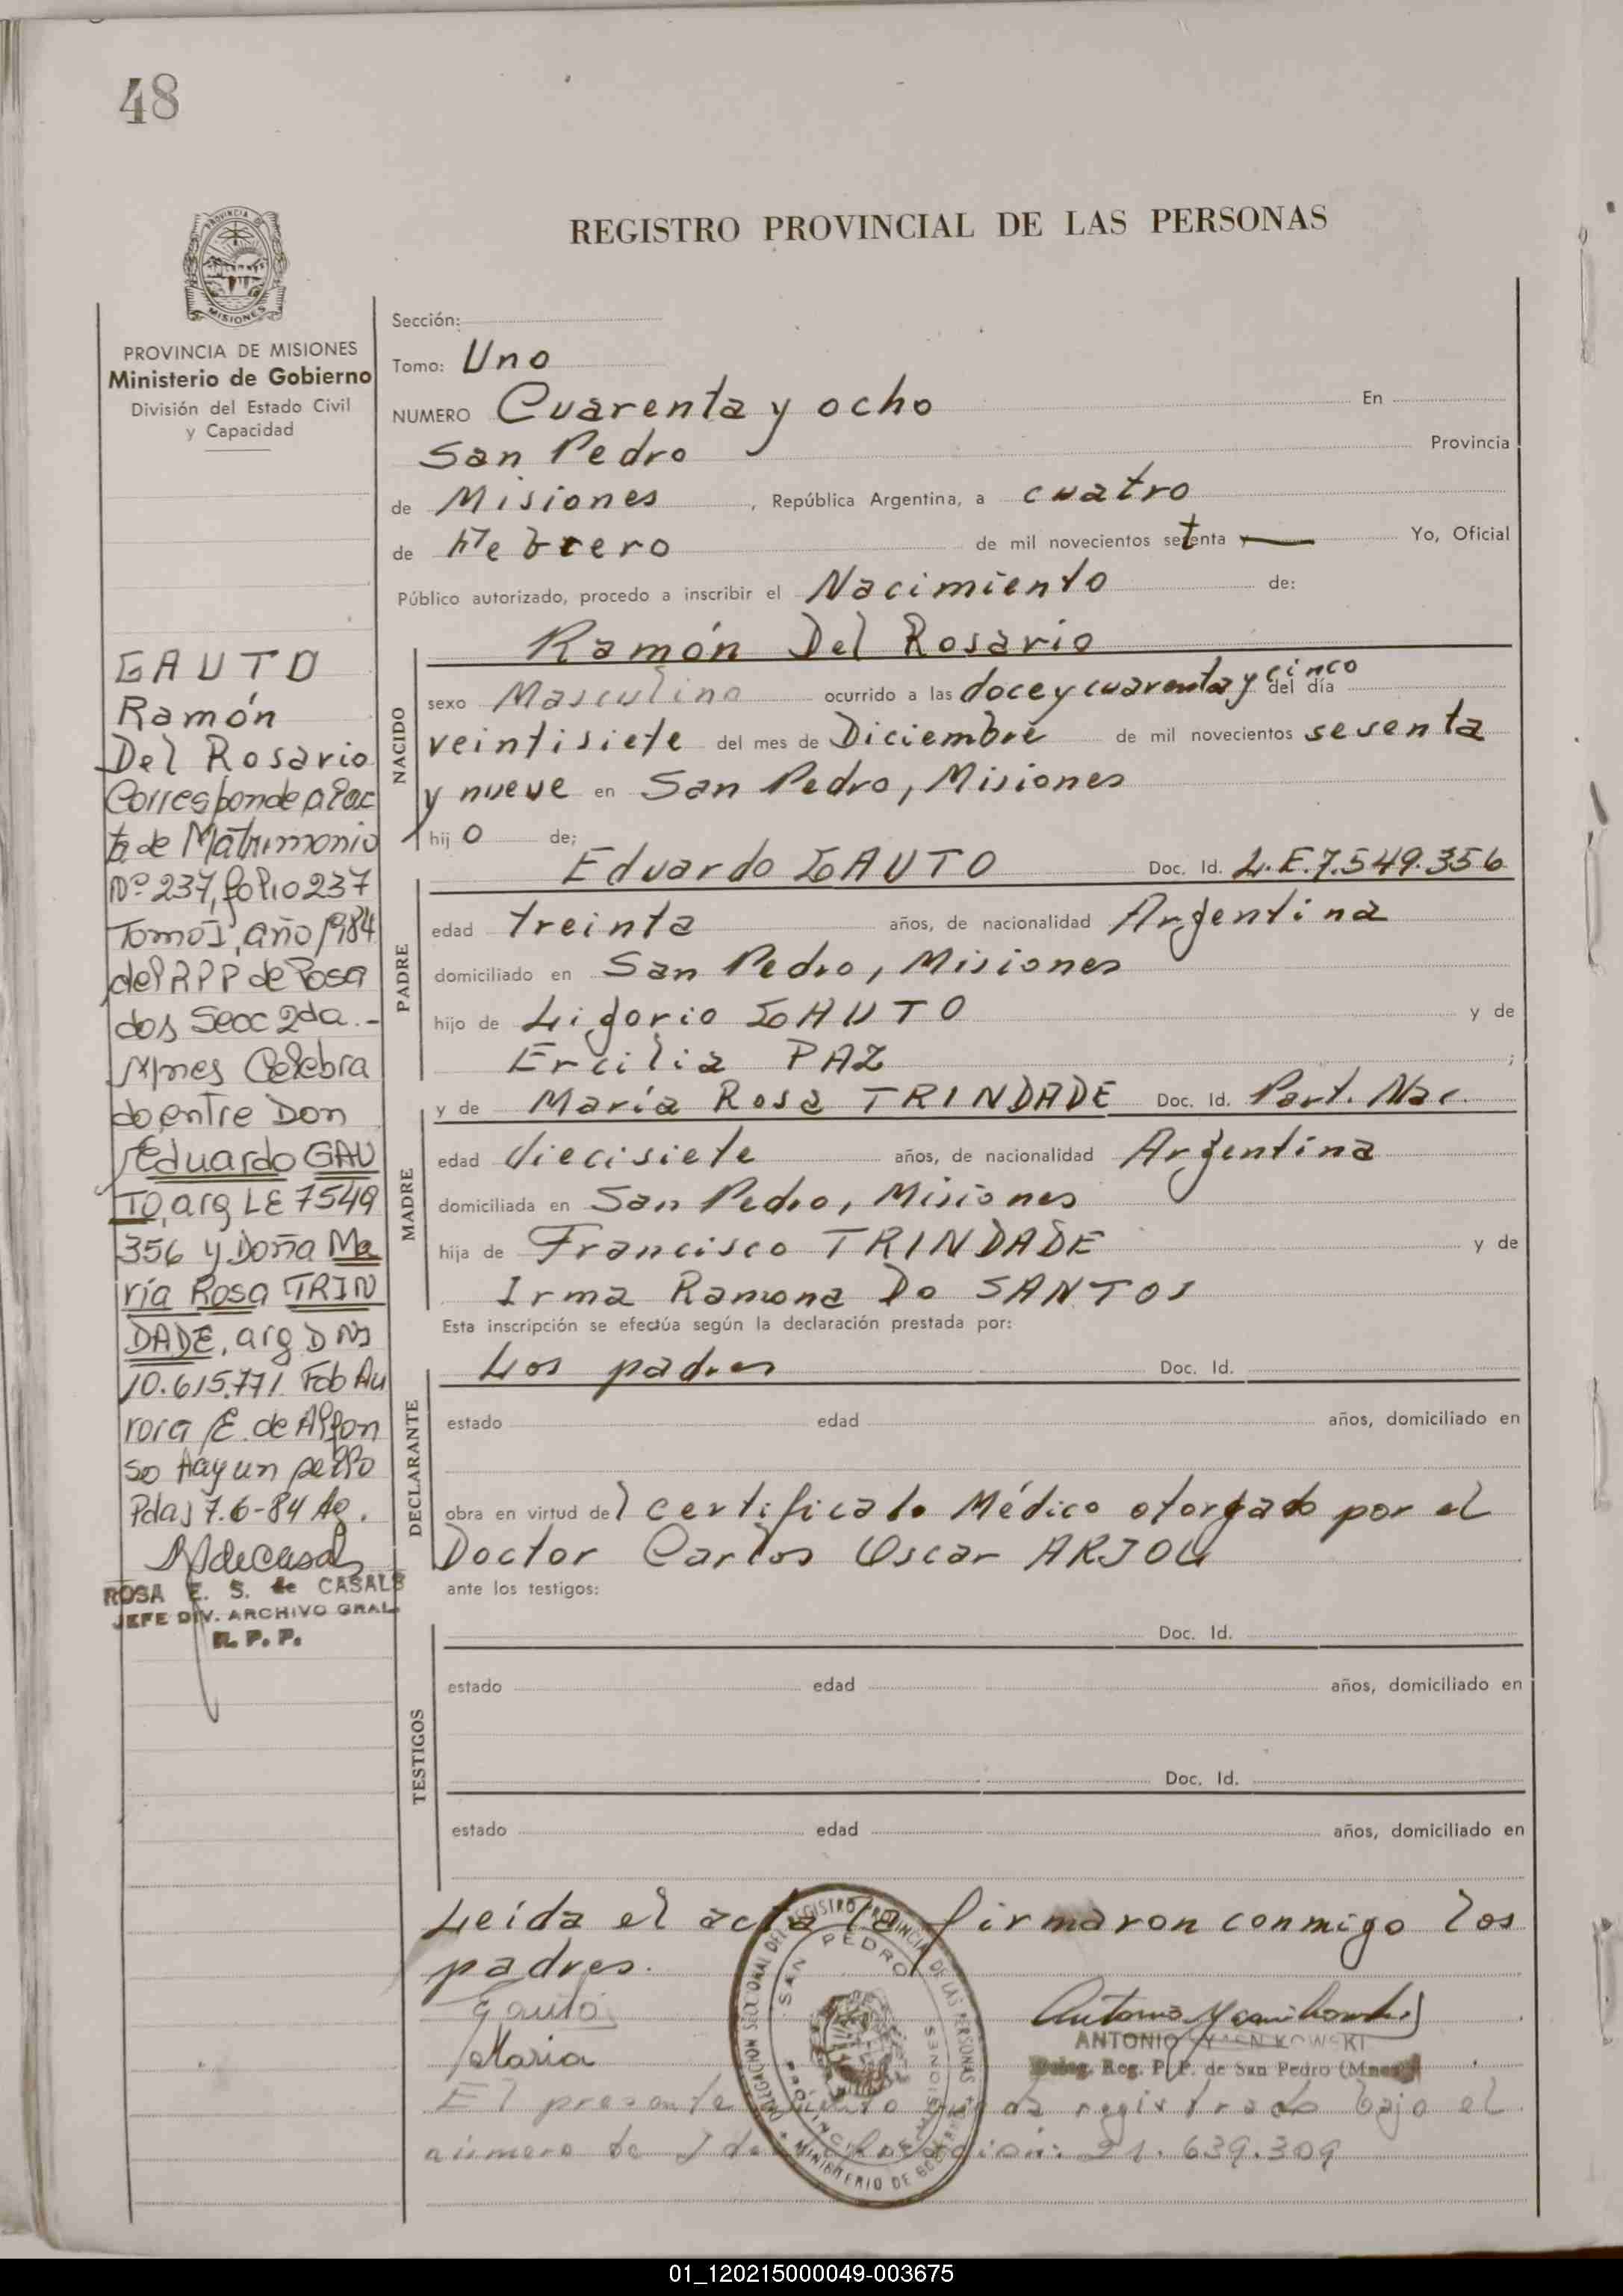 48
REGISTRO PROVINCIAL DE LAS PERSONAS
PROVINCIA DE MISIONES
Ministerio de Gobierno
División del Estado Civil
y Capacidad
GAUTO
Ramón
Del Rosario
Corresponde al ac
ta de Matrimonio
Nº 237, folio 237
Tomo I, año 1984
del RPP de Posa
dos Secc 2da.-
Mnes Celebra
do entre Don
Eduardo GAU
TO, arg LE 7549
356 y Doña Ma
ría Rosa TRIN
DADE, arg DNI
10.615.771. Fdo Au
rora E. de Alfon
so Hay un sello
Pdas 7.6-84
ROSA E. S. de CASALS
JEFE DIV. ARCHIVO GRAL
R. P. P.
Sección:
Tomo: Uno
NUMERO Cuarenta y ocho En
San Pedro Provincia
de Misiones, República Argentina, a cuatro
de Febrero de mil novecientos setenta y — Yo, Oficial
Público autorizado, procedo a inscribir el Nacimiento de:
NACIDO
Ramón Del Rosario
sexo Masculino ocurrido a las doce y cuarenta y cinco del día
veintisiete del mes de Diciembre de mil novecientos sesenta
y nueve en San Pedro, Misiones
hij o de;
PADRE
Eduardo GAUTO Doc. Id. L.E.7.549.356
edad treinta años, de nacionalidad Argentina
domiciliado en San Pedro, Misiones
hijo de Ligorio GAUTO y de
Ercilia PAZ ;
MADRE
y de María Rosa TRINDADE Doc. Id. Part. Nac.
edad diecisiete años, de nacionalidad Argentina
domiciliada en San Pedro, Misiones
hija de Francisco TRINDADE y de
Irma Ramona Do SANTOS
Esta inscripción se efectúa según la declaración prestada por:
DECLARANTE
Los padres Doc. Id.
estado edad años, domiciliado en
obra en virtud del certificado Médico otorgado por el
Doctor Carlos Oscar ARJOL
ante los testigos:
TESTIGOS
Doc. Id.
estado edad años, domiciliado en
Doc. Id.
estado edad años, domiciliado en
Leída el acta la firmaron conmigo los
padres.
Gauto
Maria
DELEGACION SECCIONAL DEL REGISTRO PROVINCIAL DE LAS PERSONAS
SAN PEDRO
PROVINCIA DE MISIONES
MINISTERIO DE GOBIERNO
ANTONIO
Deleg. Reg. P. P. de San Pedro (Mnes)
El presente queda registrado bajo el
número de 21.639.309
01_120215000049-003675